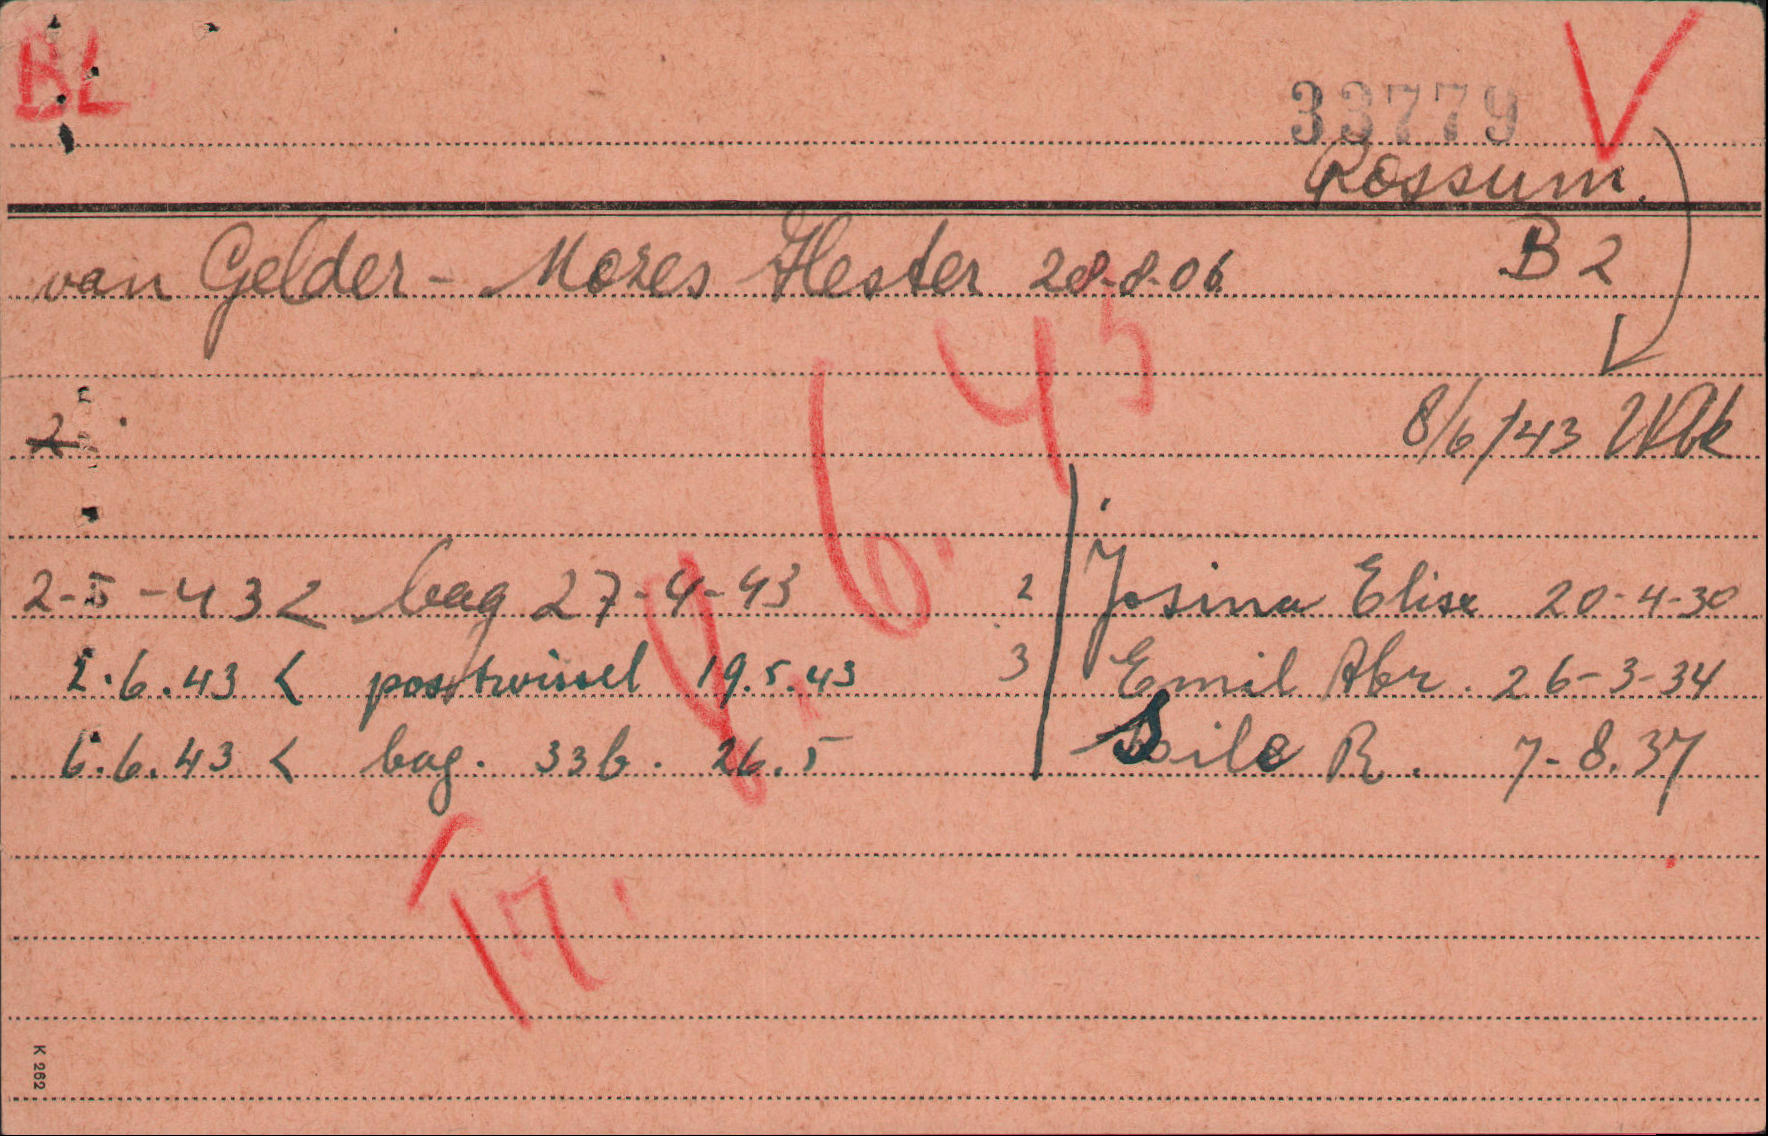 BL
33779 V
Rossum.
van Gelder - Mozes Hester 28-8-06 B 2
2
8/6/43 Wbk
8.6.43
2-5-43 < bag 27-4-43
2 Josina Elise 20-4-30
2.6.43 < postwissel 19.5.43
3 Emil Abr. 26-3-34
6.6.43 < bag. 33b. 26.5
R. 7-8.37
17.
K 262